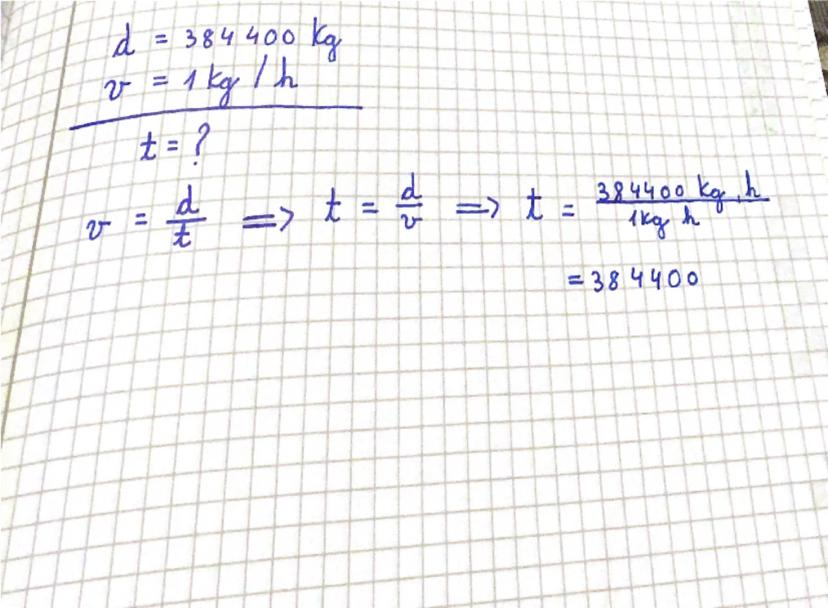 d = 384 400 kg
v = 1 kg / h
t = ?
v = d/t => t = d/v => t = 384400 kg . h / 1kg h
= 384400